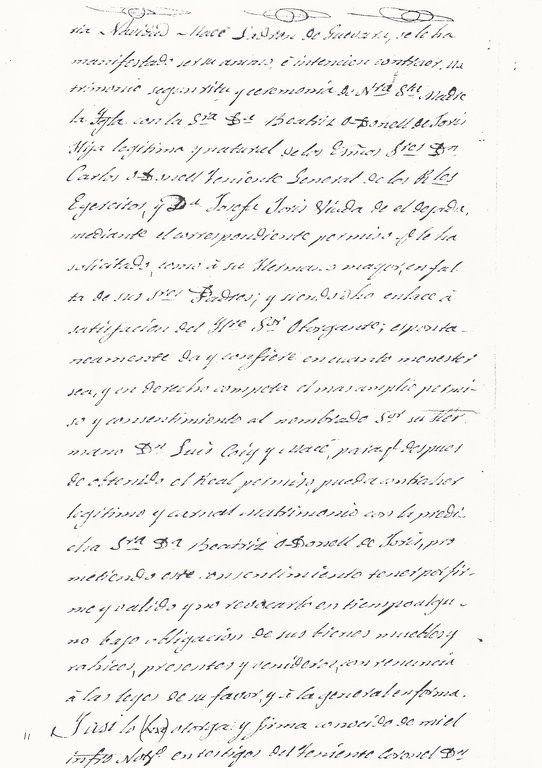 ria Natividad Macé Ladron de Guevara, se le ha
manifestado ser su animo, é intencion contraer, ma
trimonio segun rito y ceremonia de Nra Sta Madre
la Ygla con la Sra Da Beatriz O-Donell de Joris
Hija legitima y natural de los Exmos Sres Dn
Carlos O-Donell Teniente General de los Rles
Egercitos, y Da Josefa Joris Viuda de el dejada,
mediante el correspondiente permiso q le ha
solicitado, como á su Hermano mayor, en fal
ta de sus Sres Padres; y siendo dho enlace á
satisfacion del Yltre Sor Otorgante; esponta-
neamente da y confiere en cuanto menester
sea, y en derecho competa el mas amplio permi-
so y consentimiento al nombrado Sor su Her
mano Dn Luis Caig y Macé, para q despues
de obtenido el Real permiso, pueda contraher
legitimo y carnal Matrimonio con la predi-
cha Sra Da Beatriz O-Donell de Joris, pro
metiendo este consentimiento tener por fir-
me y valido y no revocarlo en tiempo algu-
no bajo obligacion de sus bienes muebles y
rahices, presentes y venideros, con renuncia
á las leyes de su favor, y á la general en forma.
Y asi lo otorga y firma conocido de mi el
infro Noto en testigos del Teniente Coronel Dn